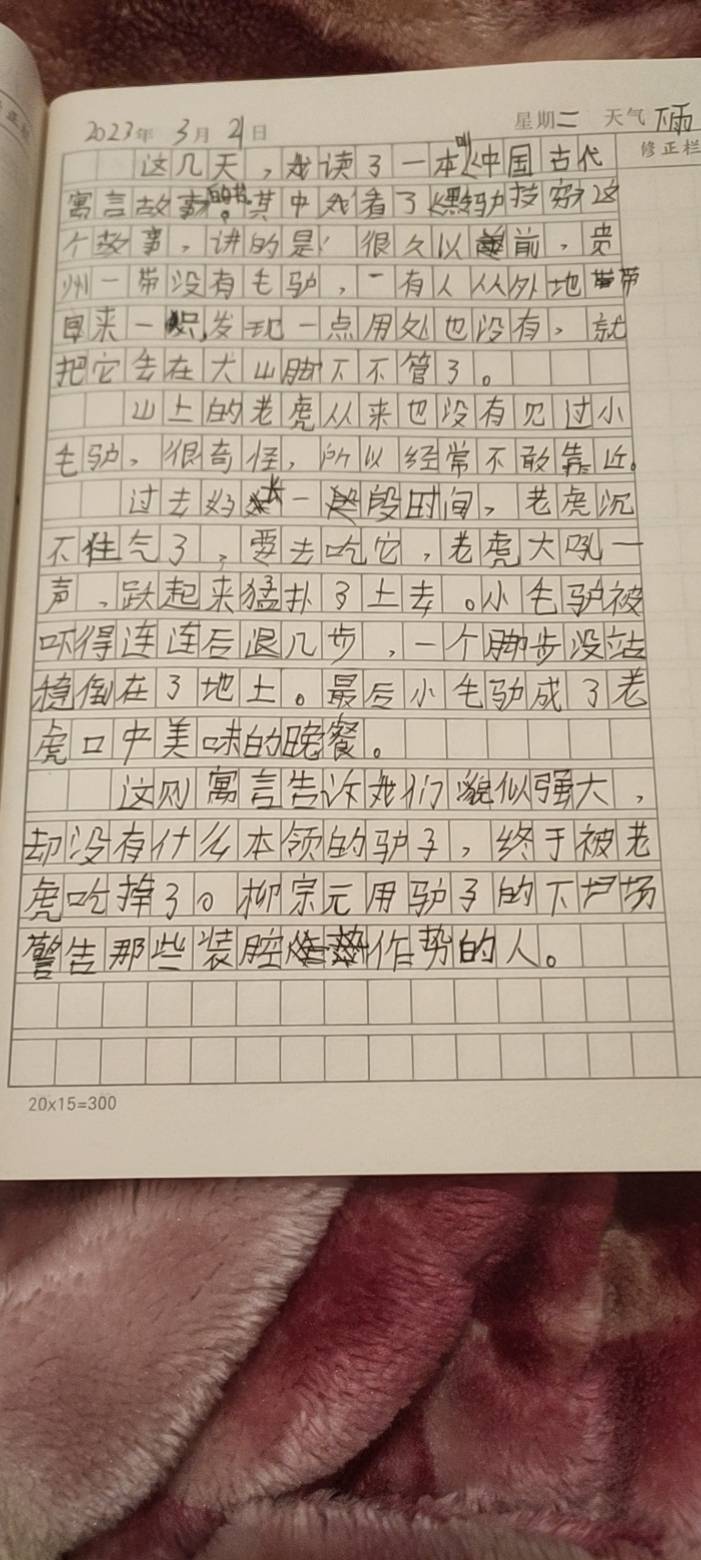 2023年 3月 21日 星期二 天气 下雨
修正栏
这几天，我读了一本叫《中国古代
寓言故事》的书。其中我看了《黔驴技穷》这
个故事，讲的是：很久以前，贵
州一带没有毛驴，有人从外地带
回来一只，发现一点用处也没有，就
把它丢在大山脚下不管了。
山上的老虎从来也没有见过小
毛驴，很奇怪，所以经常不敢靠近。
过去好长一段时间，老虎沉
不住气了，要去吃它，老虎大吼一
声，跃起来猛扑了上去。小毛驴被
吓得连连后退几步，一个脚步没站
稳倒在了地上。最后小毛驴成了老
虎口中美味的晚餐。
这则寓言告诉我们貌似强大，
却没有什么本领的驴子，终于被老
虎吃掉了。柳宗元用驴子的下场
警告那些装腔作势的人。
20x15=300